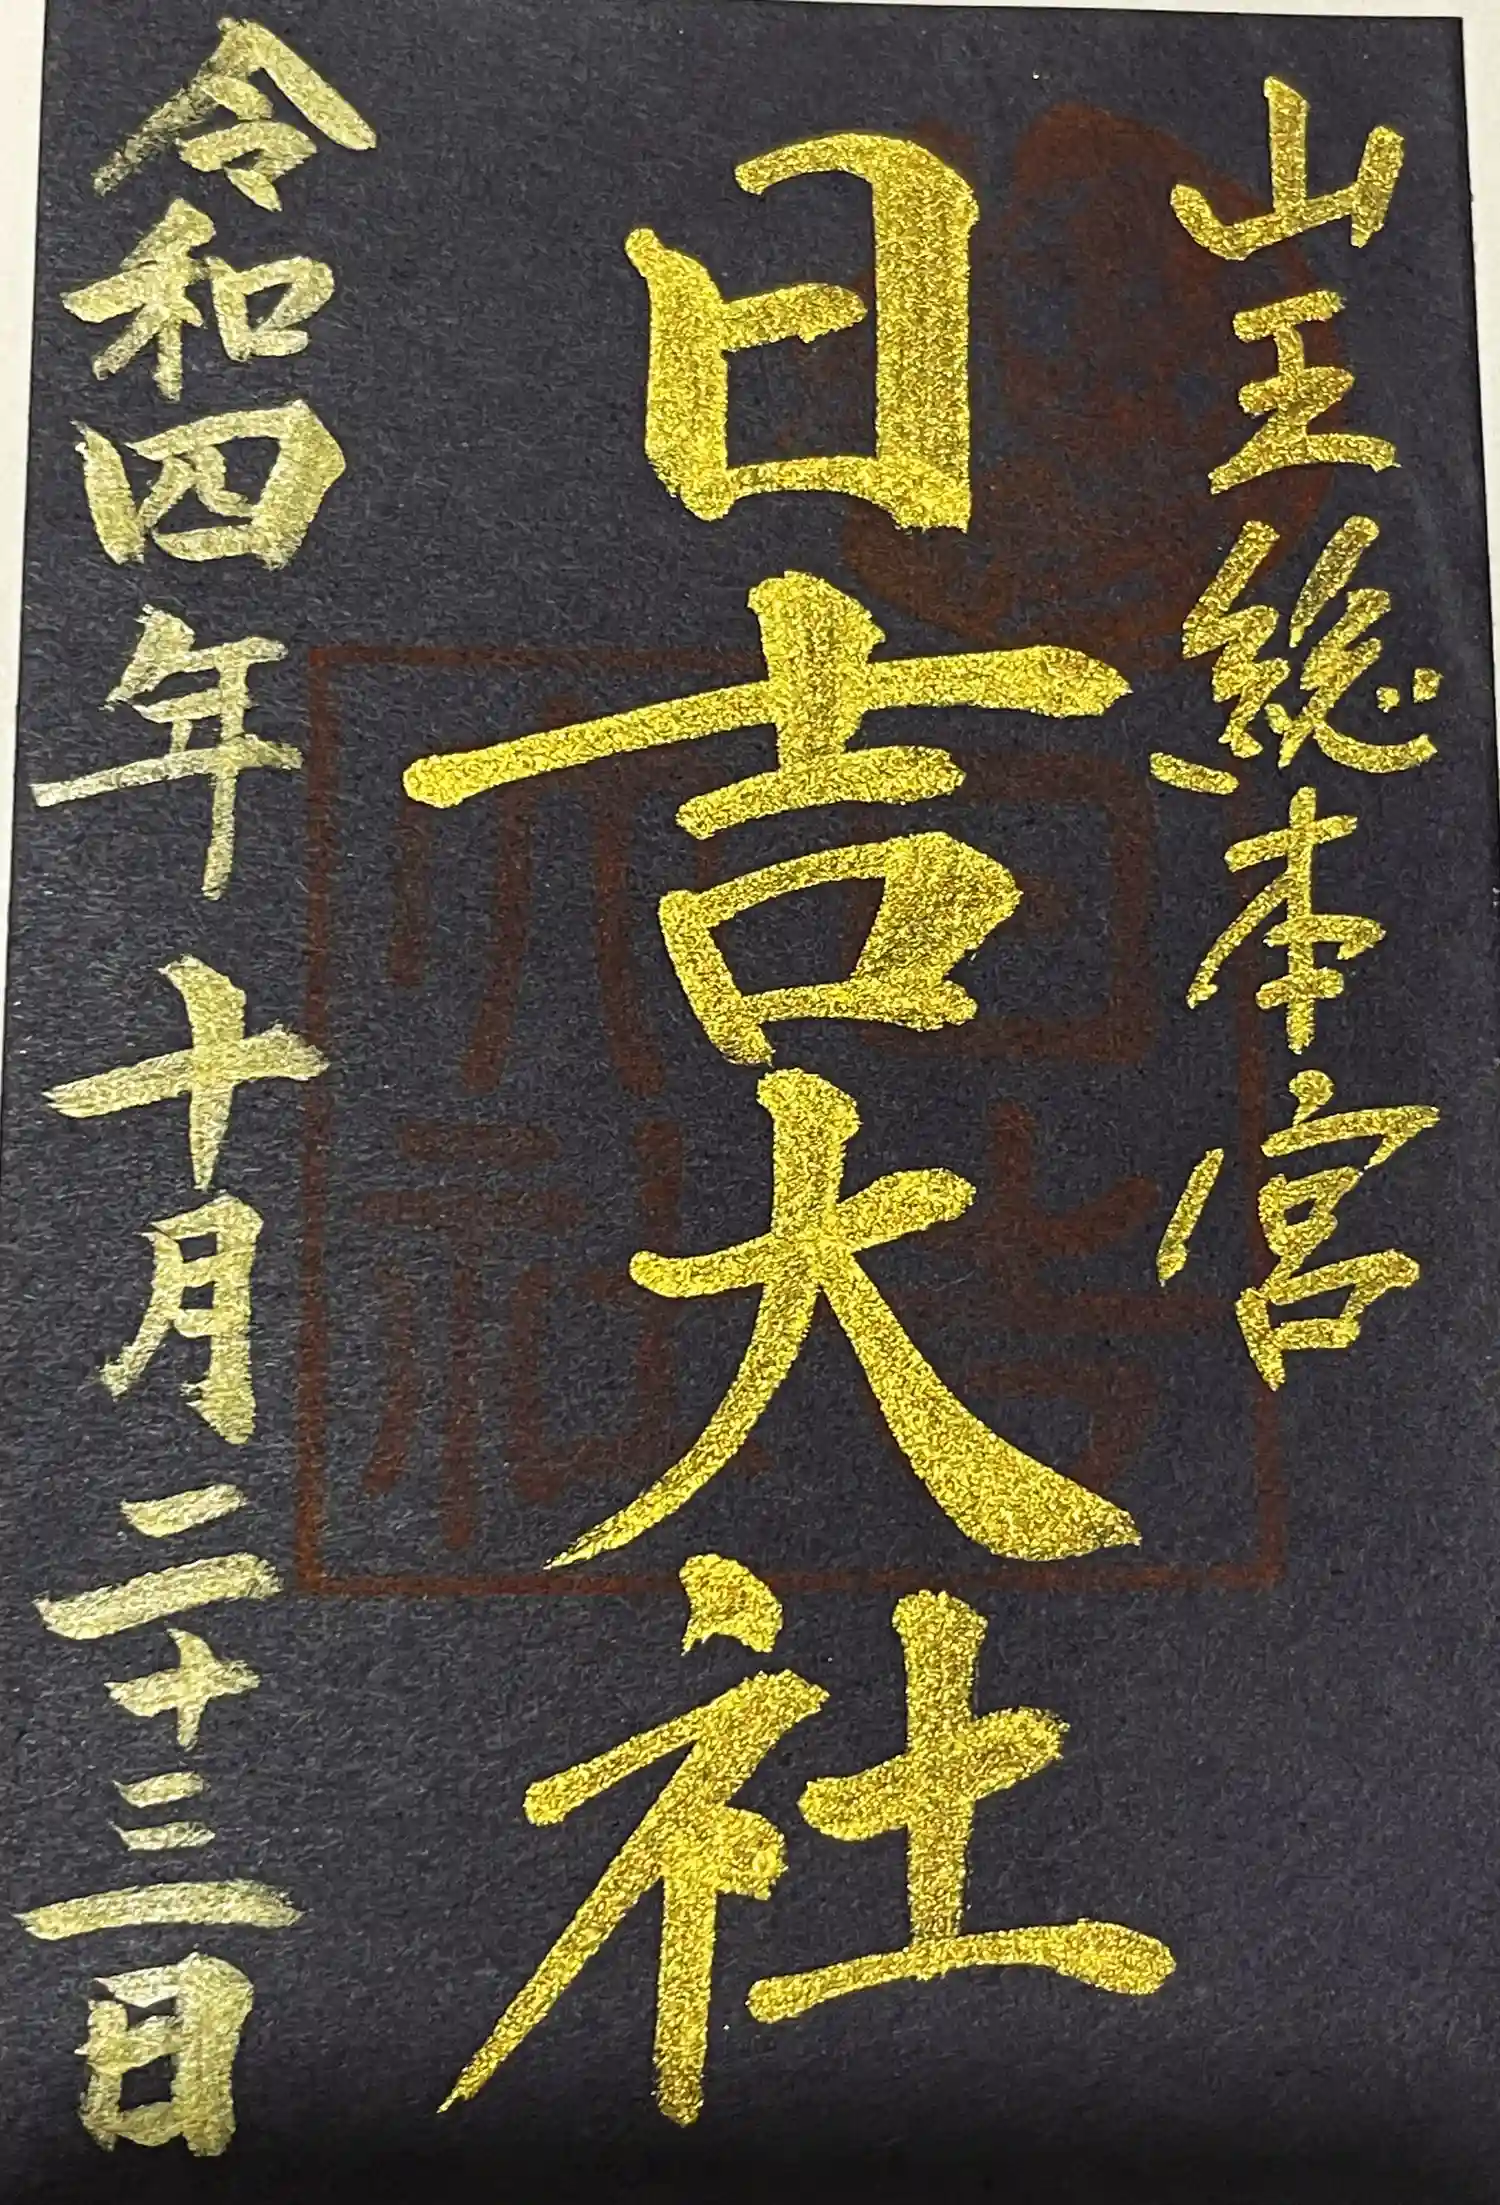 山王総本宮
日吉大社
令和四年十月二十三日
日吉大社